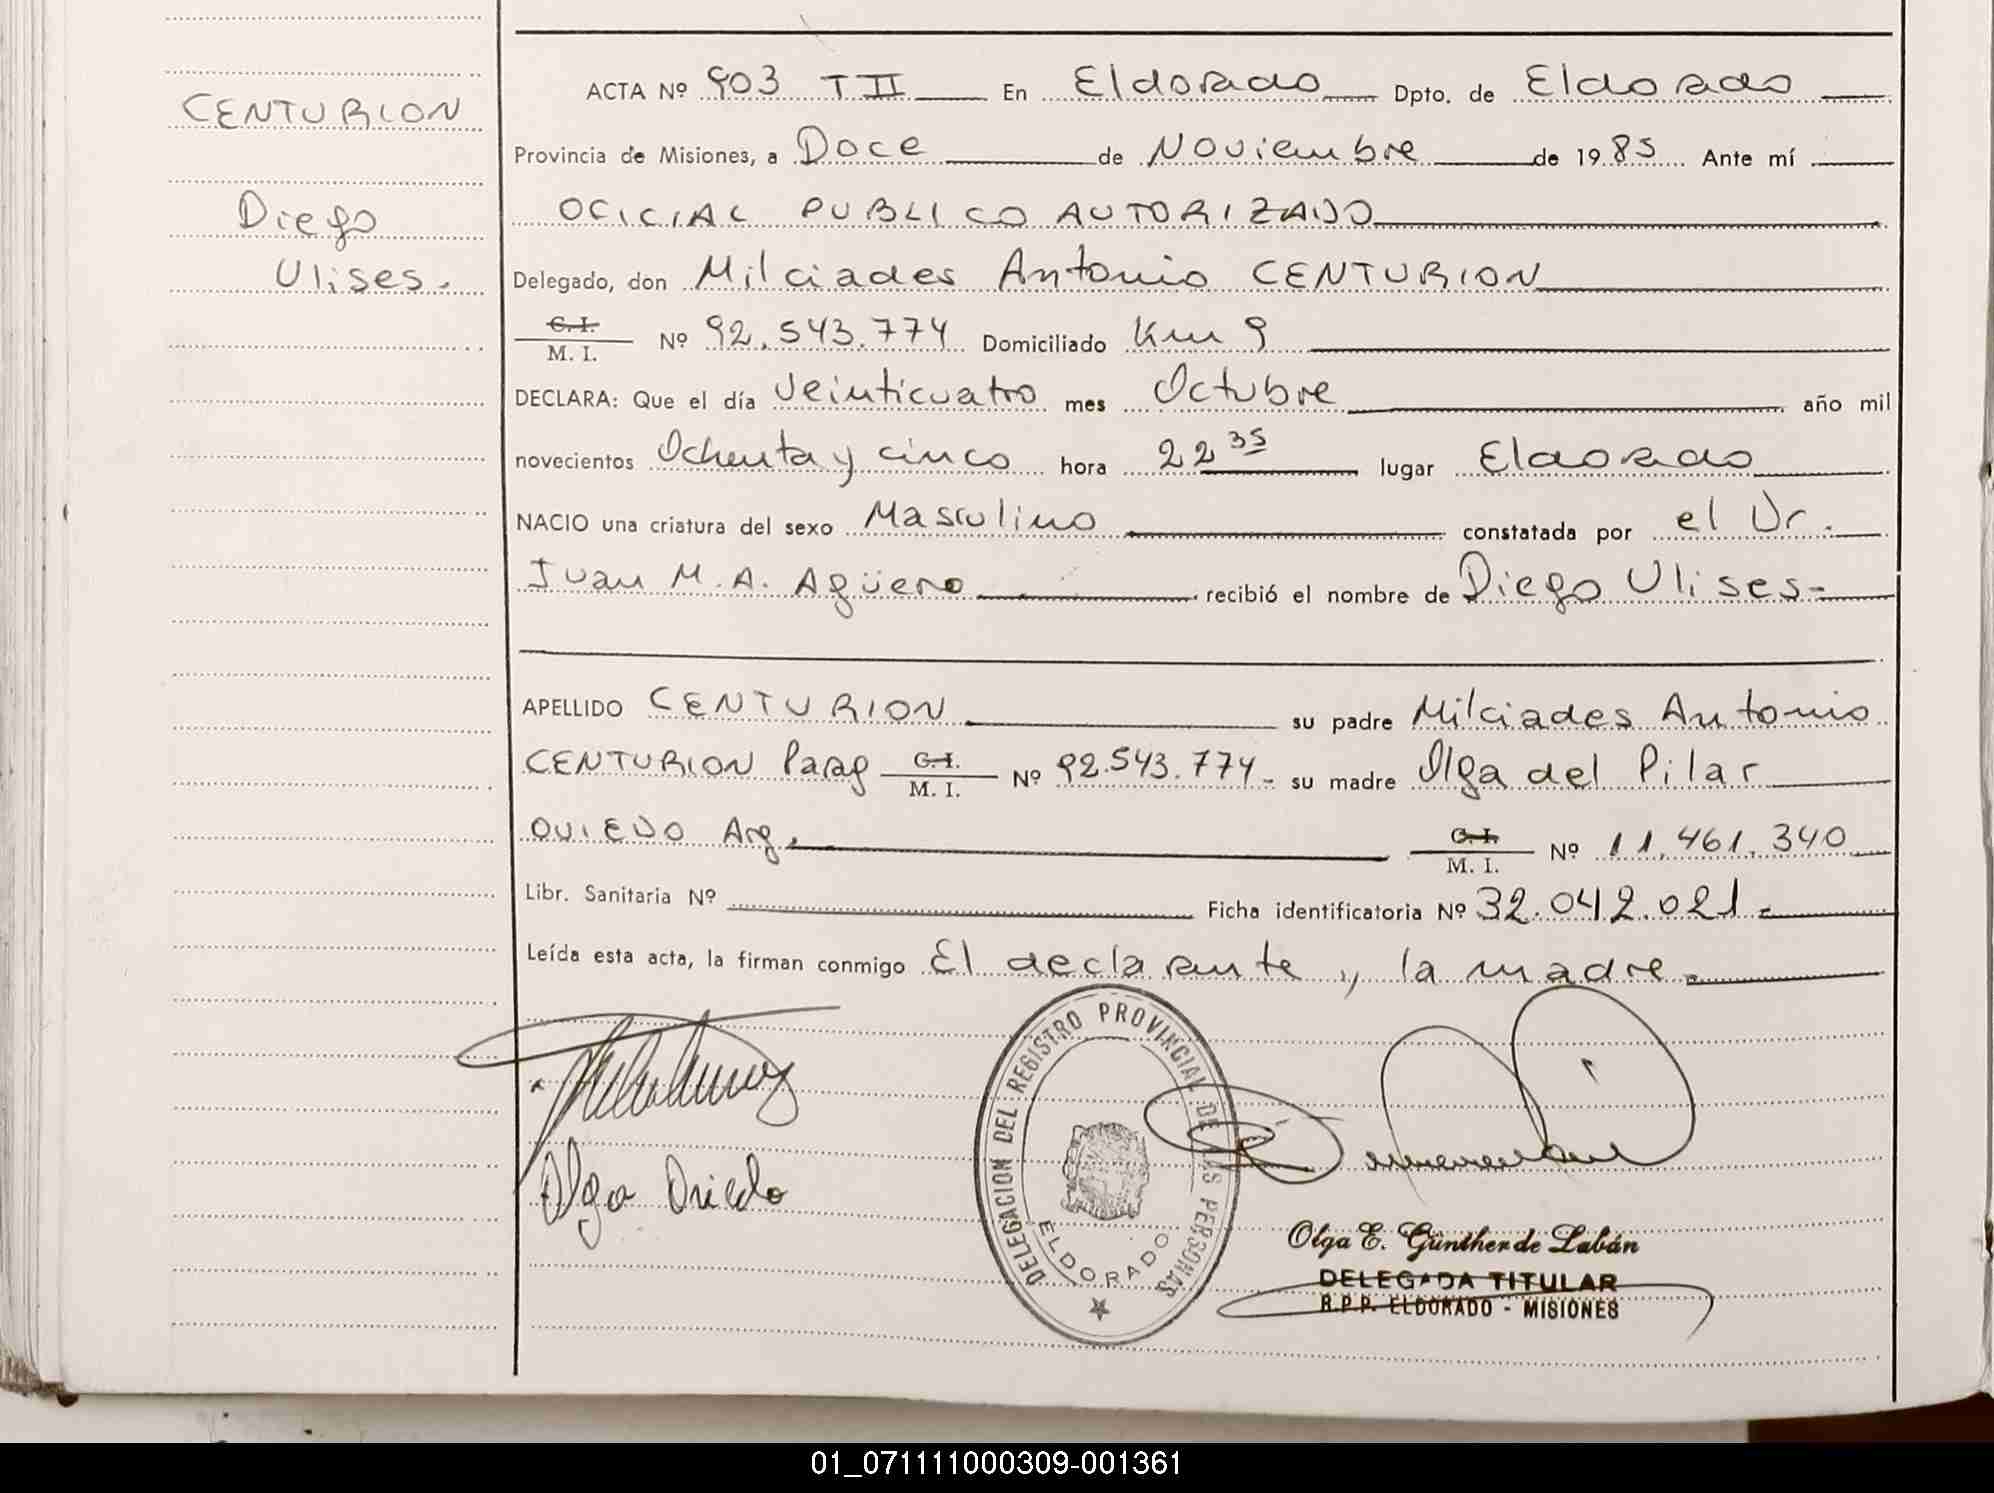 CENTURION
Diego
Ulises.
ACTA Nº 903 T II En Eldorado Dpto. de Eldorado
Provincia de Misiones, a Doce de Noviembre de 1985 Ante mí
OFICIAL PUBLICO AUTORIZADO
Delegado, don Milciades Antonio CENTURION
C. I.
M. I. Nº 92.543.774 Domiciliado Km 9
DECLARA: Que el día Veinticuatro mes Octubre año mil
novecientos Ochenta y cinco hora 22 35 lugar Eldorado
NACIO una criatura del sexo Masculino constatada por el Dr.
Juan M. A. Agüero recibió el nombre de Diego Ulises-
APELLIDO CENTURION su padre Milciades Antonio
CENTURION Parag C. I.
M. I. Nº 92.543.774- su madre Olga del Pilar
OVIEDO Arg. C. I.
M. I. Nº 11.461.340
Libr. Sanitaria Nº Ficha identificatoria Nº 32.042.021-
Leída esta acta, la firman conmigo El declarante y la madre-
Olga Oviedo
DELEGACION DEL REGISTRO PROVINCIAL DE LAS PERSONAS
ELDORADO
Olga E. Günther de Labán
DELEGADA TITULAR
R.P.P. ELDORADO - MISIONES
01_071111000309-001361